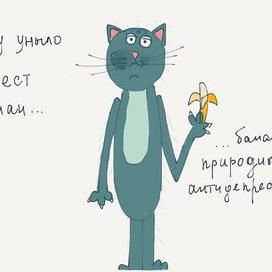 у уныло
ест
...бана
природны
антидепрес